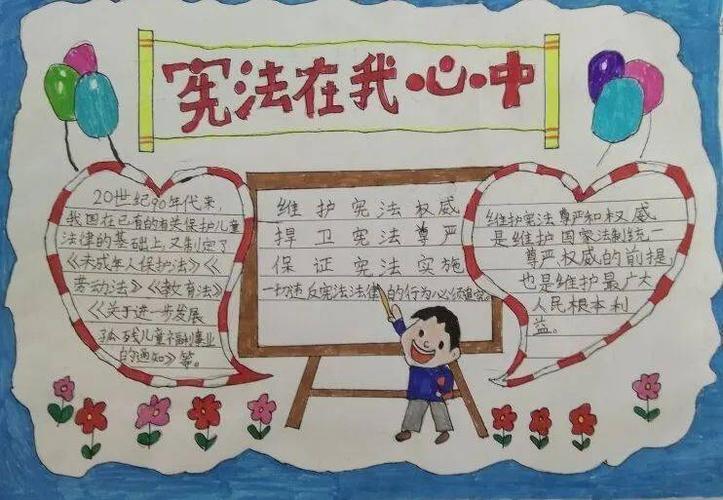 宪法在我心中
20世纪90年代来,
我国在已有的有关保护儿童
法律的基础上又制定了
《未成年人保护法》《
劳动法》《教育法》
《关于进一步发展
孤残儿童福利事业
的通知》等。
维护宪法权威
捍卫宪法尊严
保证宪法实施
一切违反宪法法律的行为必须追究。
维护宪法尊严和权威
是维护国家法制统一
尊严权威的前提,
也是维护最广大
人民根本利
益。